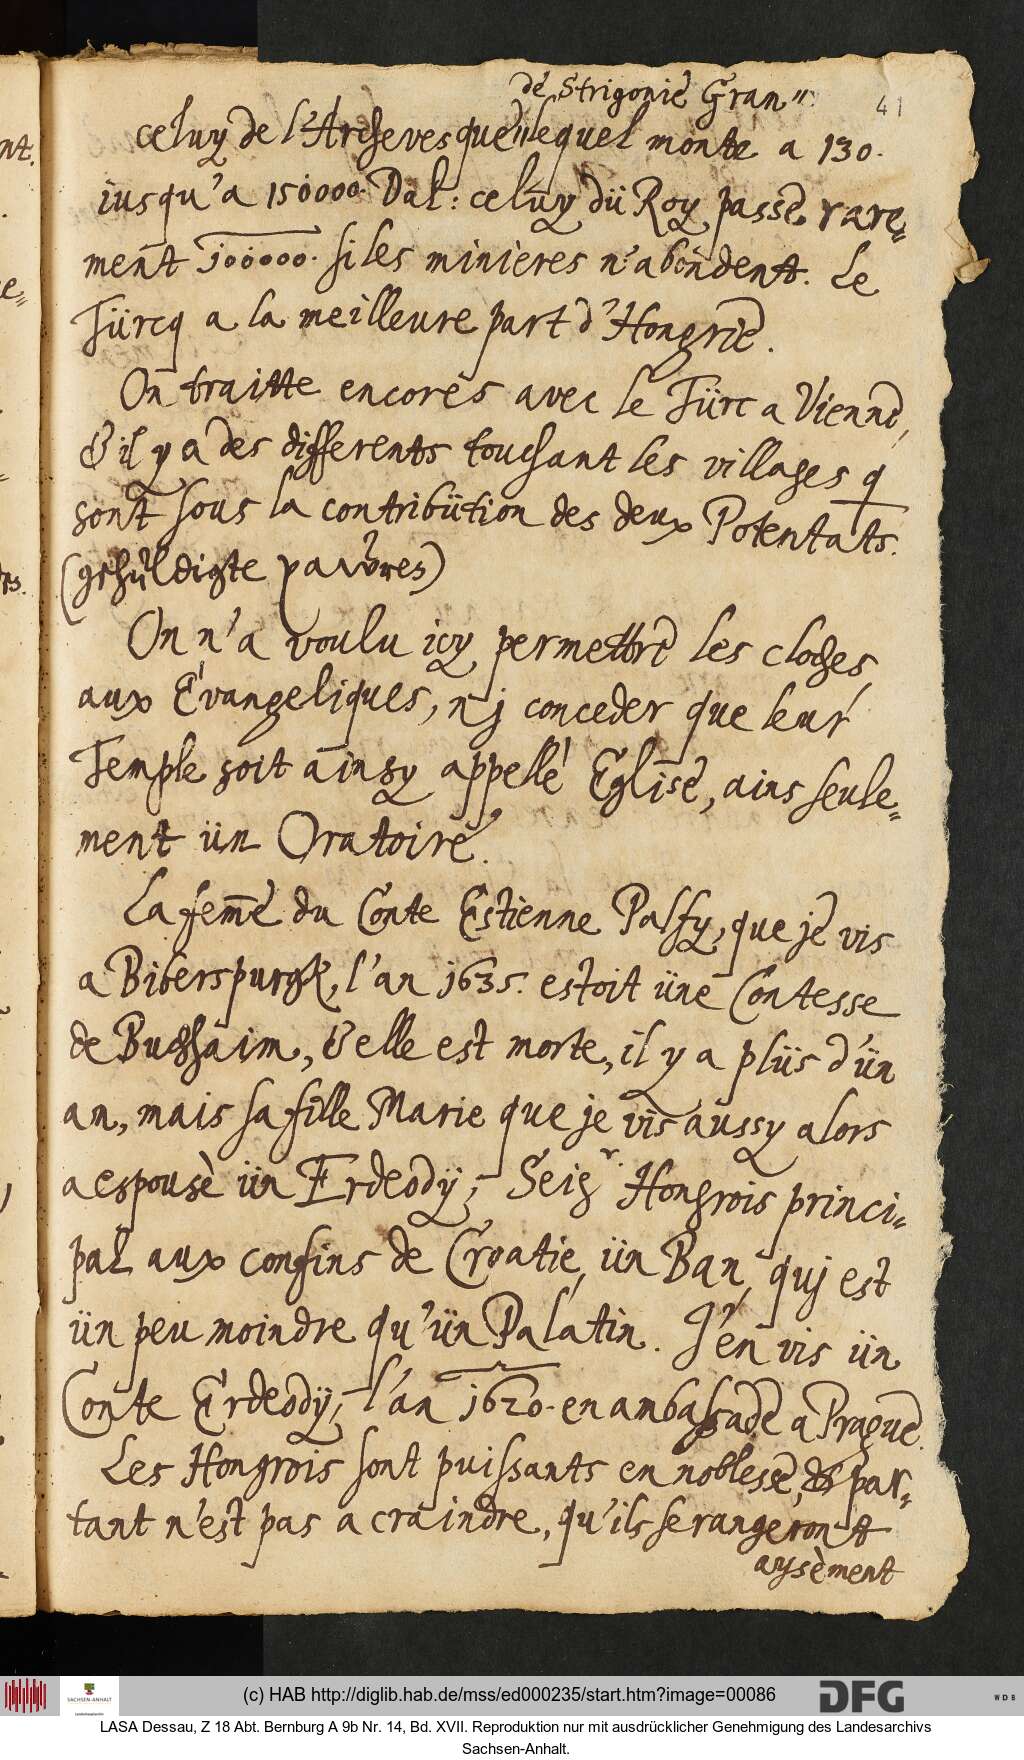 de Strigonie Gran"
41
celuy de l'Archevesque" lequel monte a 130.
jusqu'a 150000. Dal: celuy dü Roy passe rare-
ment 100000. si les minieres n'abondent. Le
Türcq a la meilleure part d'Hongrie.
On traitte encores avec le Türc a Vienne,
& il y a des differents touchant les villages q
sont sous la contribütion des deux Potentats.
(gehuldigte pauvres)
On n'a voulu icy permettre les cloches
aux Evangeliques, nj conceder que leur
Temple soit ainsy appellé Eglise, ains seule-
ment ün Oratoire.
La fem̄e du Conte Estienne Palfy, que je vis
a Biberspurgk, l'an 1635. estoit üne Contesse
de Buchhaim, & elle est morte, il y a plüs d'ün
an, mais sa fille Marie que je vis aussy alors
a espousè ün Erdeödÿ, Seigr. Hongrois princi-
pal aux confins de Croatie, ün Ban, quj est
ün peu moindre qu'ün Palatin. J'en vis ün
Conte Erdeödÿ, l'an 1620. en ambassade a Prague.
Les Hongrois sont puissants en noblesse, & par-
tant n'est pas a craindre, qu'ils se rangeront
aysèment
(c) HAB http://diglib.hab.de/mss/ed000235/start.htm?image=00086
SACHSEN-ANHALT
DFG
WDB
LASA Dessau, Z 18 Abt. Bernburg A 9b Nr. 14, Bd. XVII. Reproduktion nur mit ausdrücklicher Genehmigung des Landesarchivs
Sachsen-Anhalt.